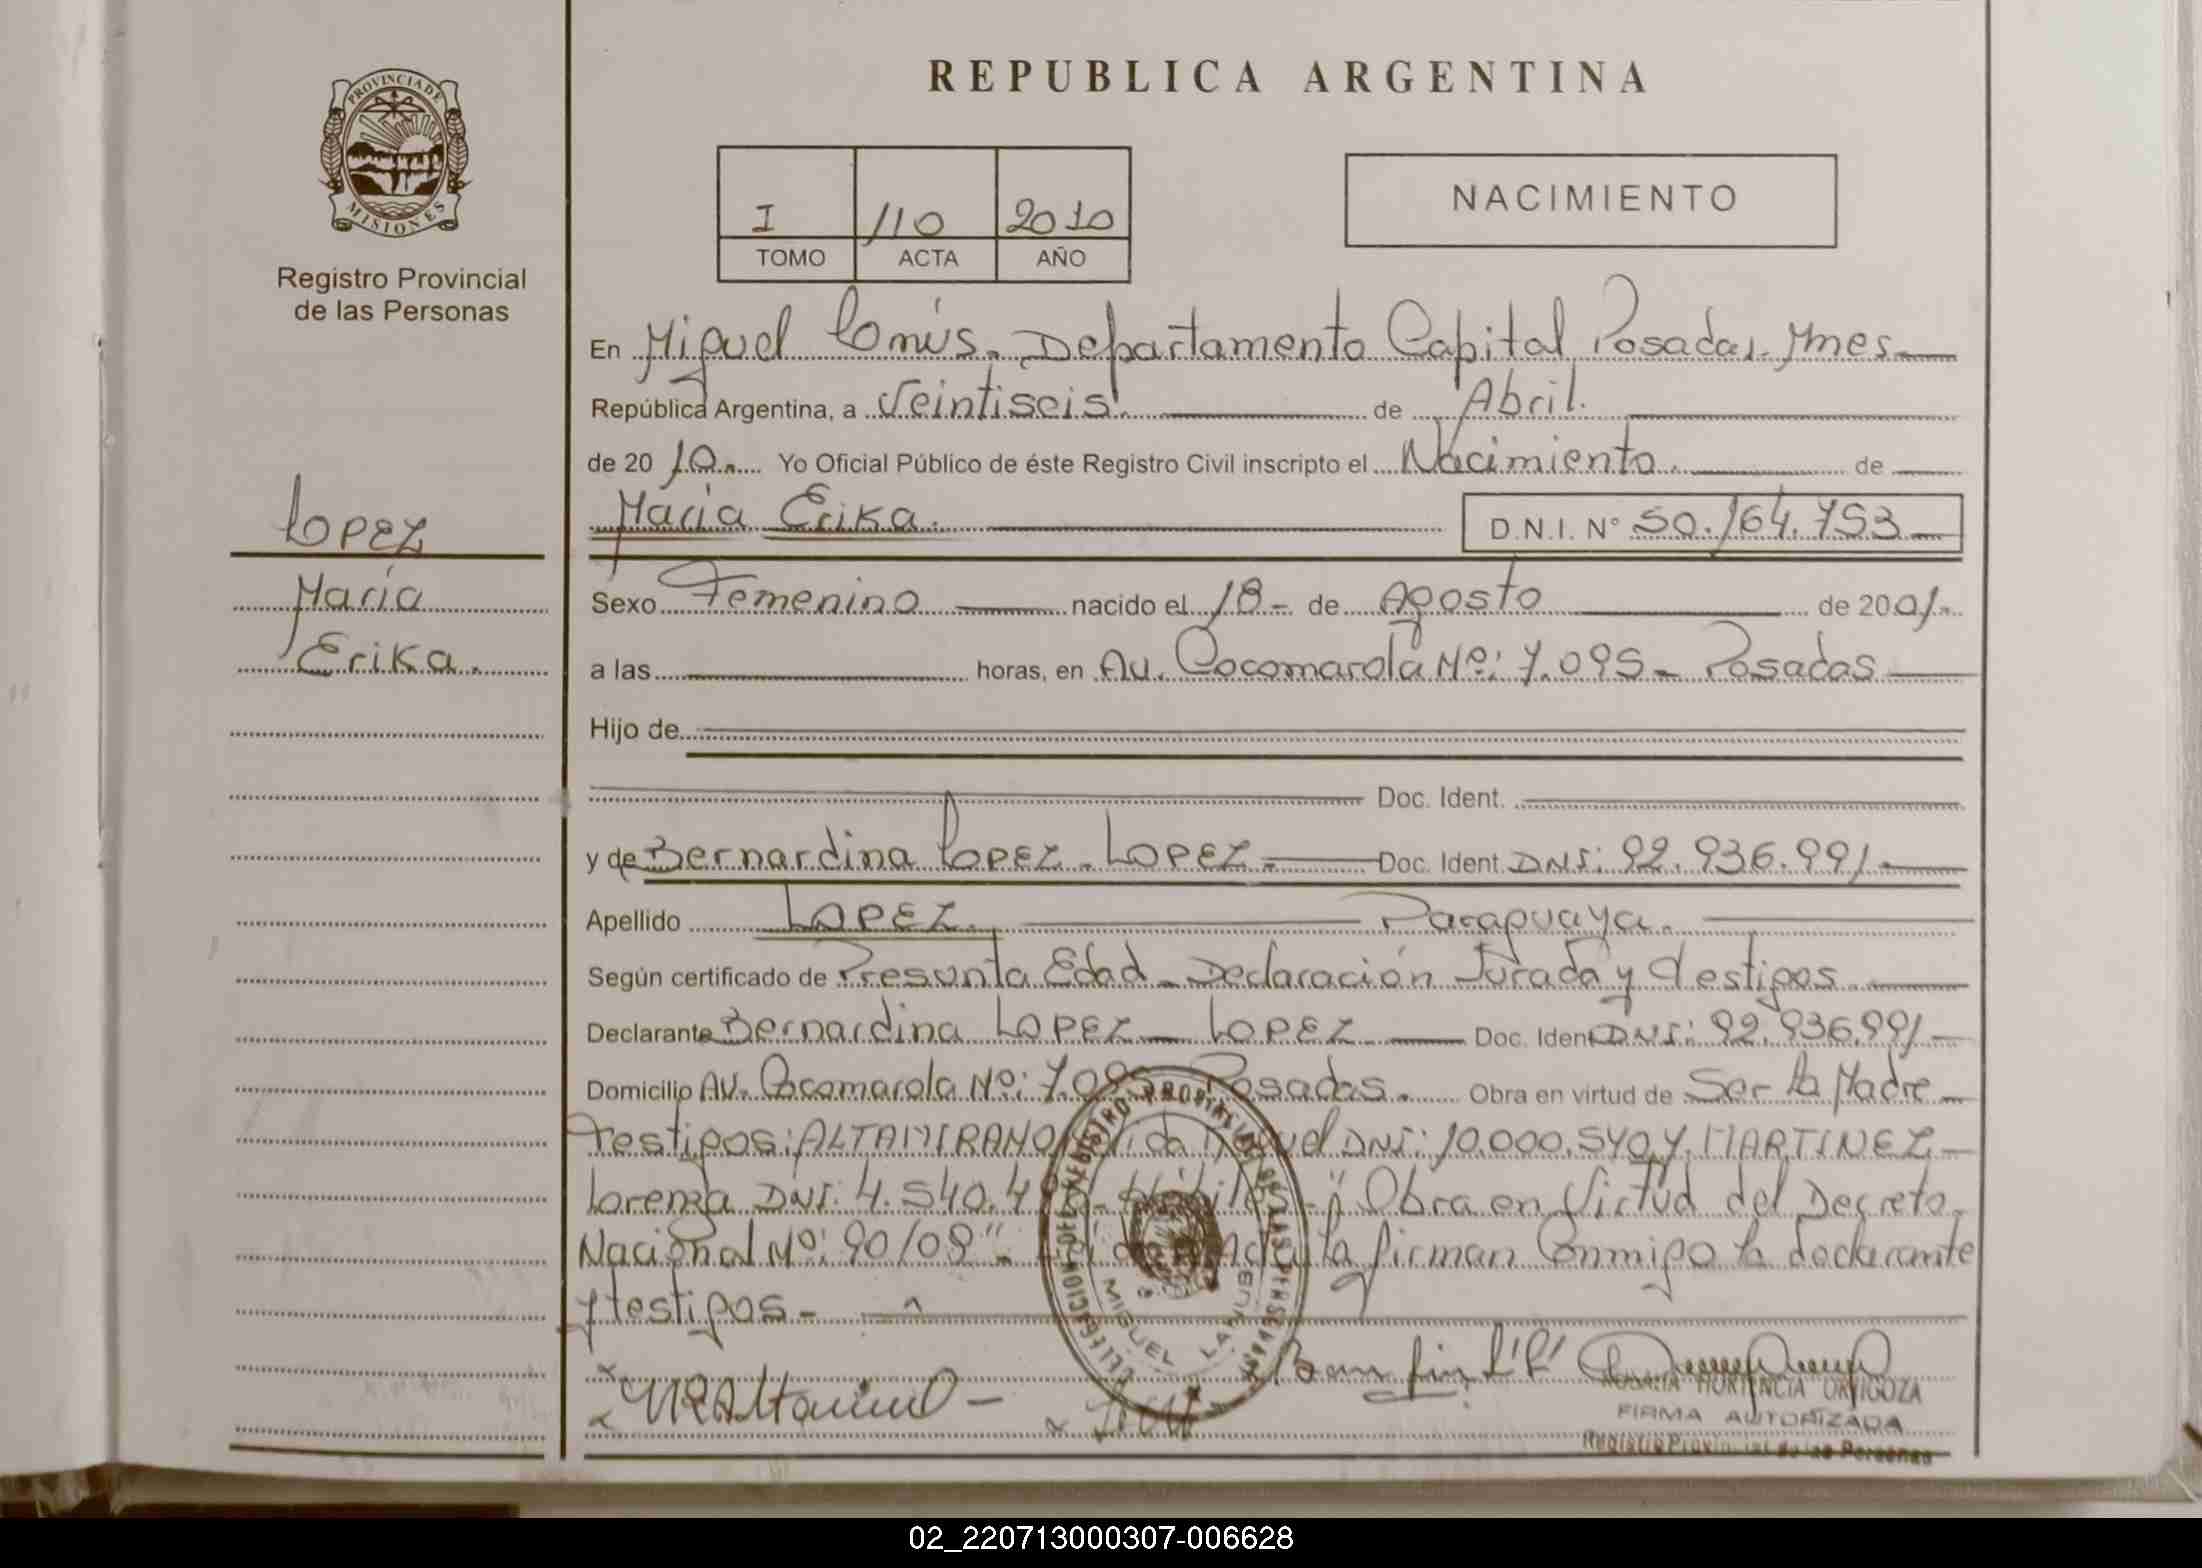 REPUBLICA ARGENTINA
PROVINCIA DE
MISIONES
Registro Provincial
de las Personas
I 110 2010
TOMO ACTA AÑO
NACIMIENTO
LOPEZ
María
Erika.
En Miguel Lanús. Departamento Capital Posadas. Mnes.
República Argentina, a Veintiseis. de Abril.
de 20 10. Yo Oficial Público de éste Registro Civil inscripto el Nacimiento. de
María Erika. D.N.I. N° 50.164.753
Sexo Femenino nacido el 18 - de Agosto de 2001.
a las horas, en Av. Cocomarola Nº: 7.095 - Posadas
Hijo de
Doc. Ident.
y de Bernardina LOPEZ - LOPEZ - Doc. Ident. DNI: 92.936.991 -
Apellido LOPEZ. Paraguaya.
Según certificado de Presunta Edad - Declaración Jurada y Testigos.
Declarante Bernardina LOPEZ - LOPEZ Doc. Ident DNI: 92.936.991 -
Domicilio Av. Cocomarola Nº: 7.095 Posadas. Obra en virtud de Ser la Madre
Testigos: ALTAMIRANO DNI: 10.000.540 y MARTINEZ
Lorenza DNI: 4.540.4 Hábiles - " Obra en Virtud del Decreto
Nacional Nº: 90/09" - firman Conmigo la declarante
y testigos -
REGISTRO PROVINCIAL DE LAS PERSONAS
DELEGACION
MIGUEL LANUS
ROSALIA HORTENCIA ORTIGOZA
FIRMA AUTORIZADA
Registro Provincial de las Personas
02_220713000307-006628